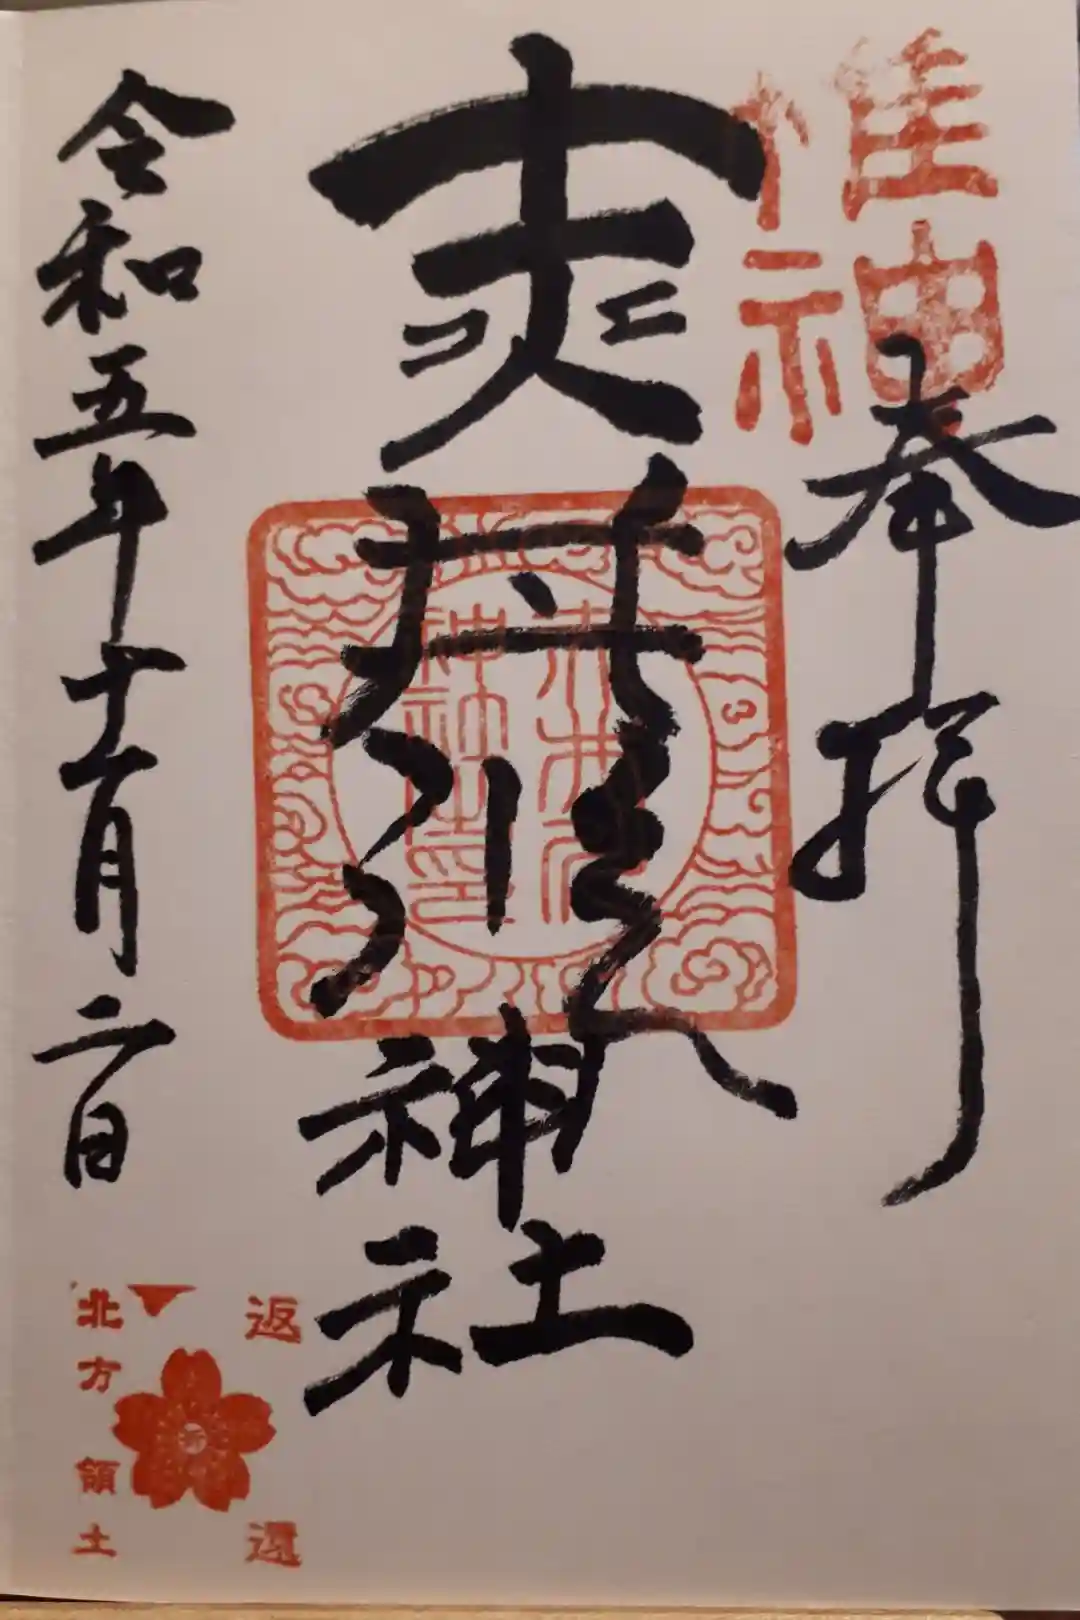 惟神
奉拝
神社
神社之印
令和五年十一月二日
返還
北方領土